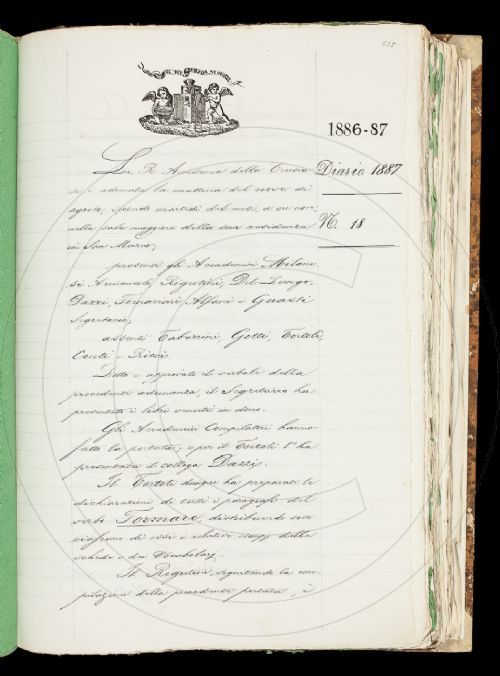 615
IL PIÙ BEL FIOR NE COGLIE
1886-87
Diario 1887
N. 18
La R. Accademia della Crusca
si è adunata la mattina del nove di
agosto, martedì del mese, a ore nove,
nella sala maggiore della sua residenza
in San Marco;
presenti gli Accademici Milane-
si Arciconsolo, Rigutini, Del Lungo,
Dazzi, Tornaccini, Alfani e Guasti
Segretario;
assenti Tabarrini, Gotti, Tortoli,
Conti e Ricci.
Letto e approvato il verbale della
precedente adunanza, il Segretario ha
presentato i libri venuti in dono.
Gli Accademici Compilatori hanno
fatta la portata; e per il Tortoli l'ha
presentata il collega Dazzi.
Il Tortoli dunque ha preparate le
dichiarazioni di tutti i paragrafi del
verbo Formare, distribuendo sotto
ciascuno di essi i relativi esempj delle
schede e dei Vocabolarj.
Il Rigutini, seguitando la com-
pilazione della precedente portata, è